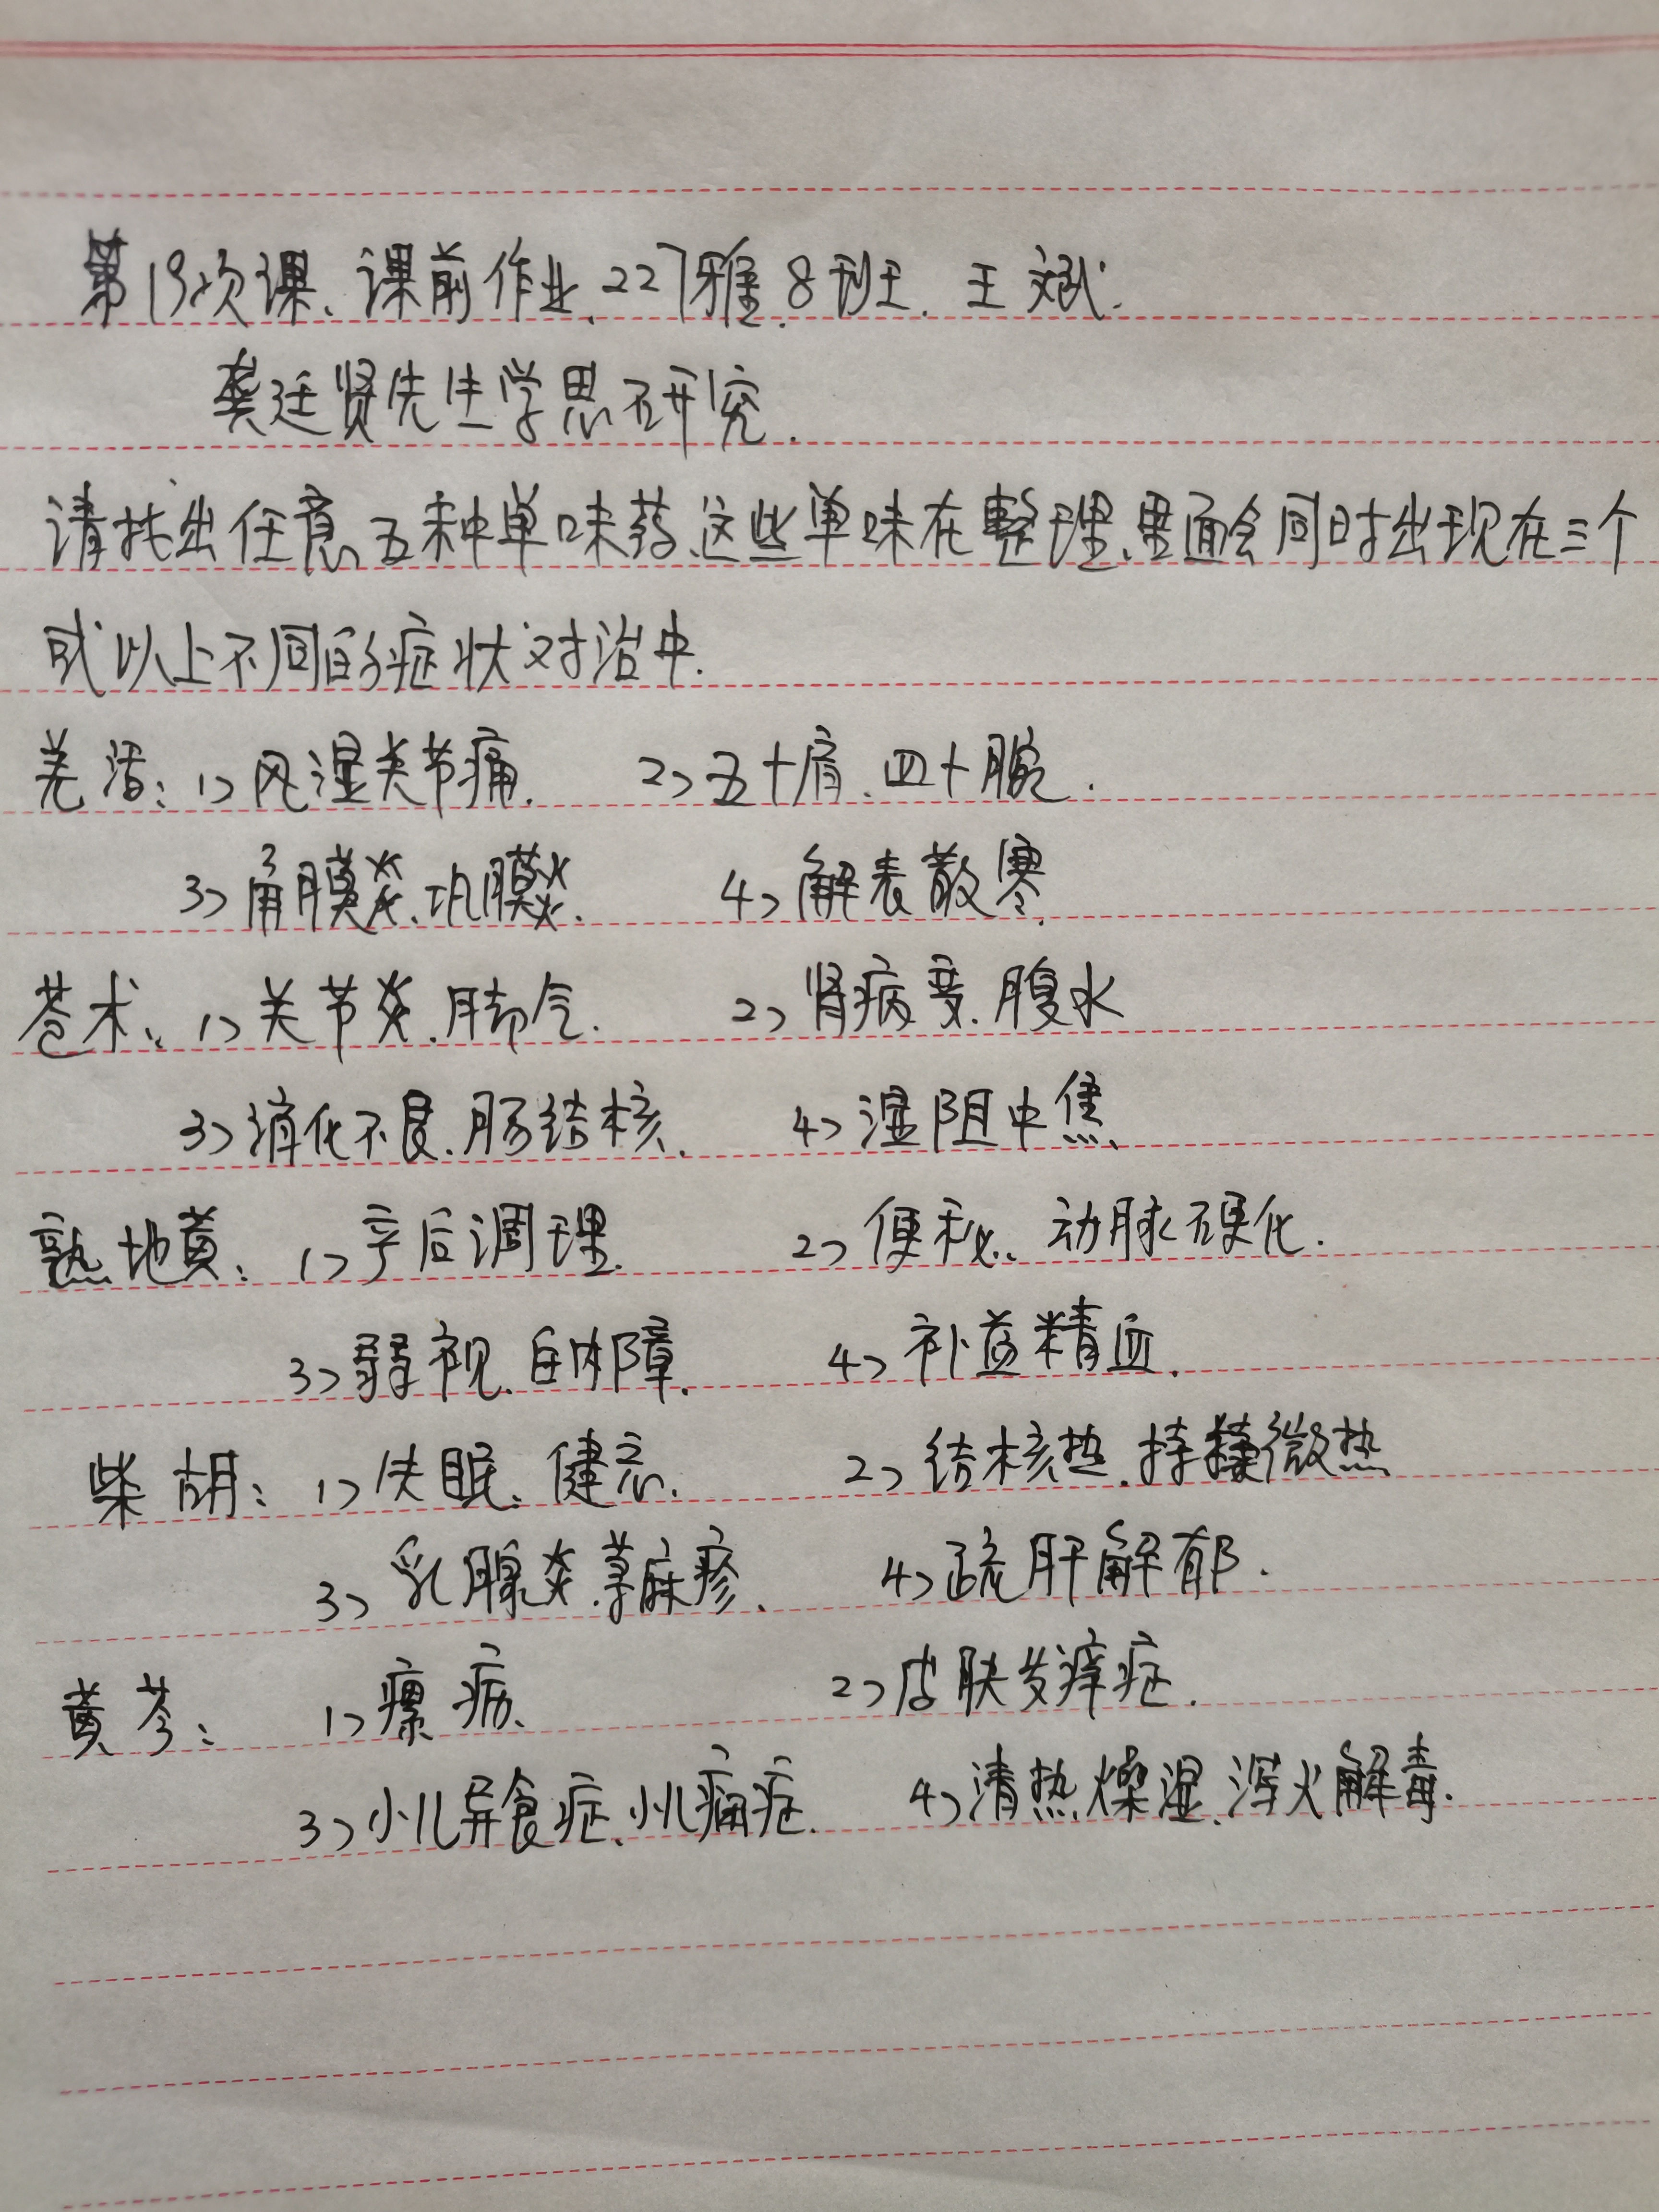 第19次课、课前作业、227雅、8班、王斌.
龚廷贤先生学思研究.
请找出任意五种单味药、这些单味在整理、里面会同时出现在三个
或以上不同的症状对治中.
羌活：1> 风湿关节痛. 2> 五十肩、四十腕.
3> 角膜炎、巩膜炎. 4> 解表散寒.
苍术：1> 关节炎、脚气. 2> 肾病变、腹水
3> 消化不良、肠结核. 4> 湿阻中焦.
熟地黄：1> 产后调理. 2> 便秘、动脉硬化.
3> 弱视、白内障. 4> 补益精血.
柴胡：1> 失眠、健忘. 2> 结核热、持续微热
3> 乳腺炎、荨麻疹. 4> 疏肝解郁.
黄芩：1> 瘰疬、 2> 皮肤发痒症.
3> 小儿异食症、小儿痫症. 4> 清热燥湿、泻火解毒.